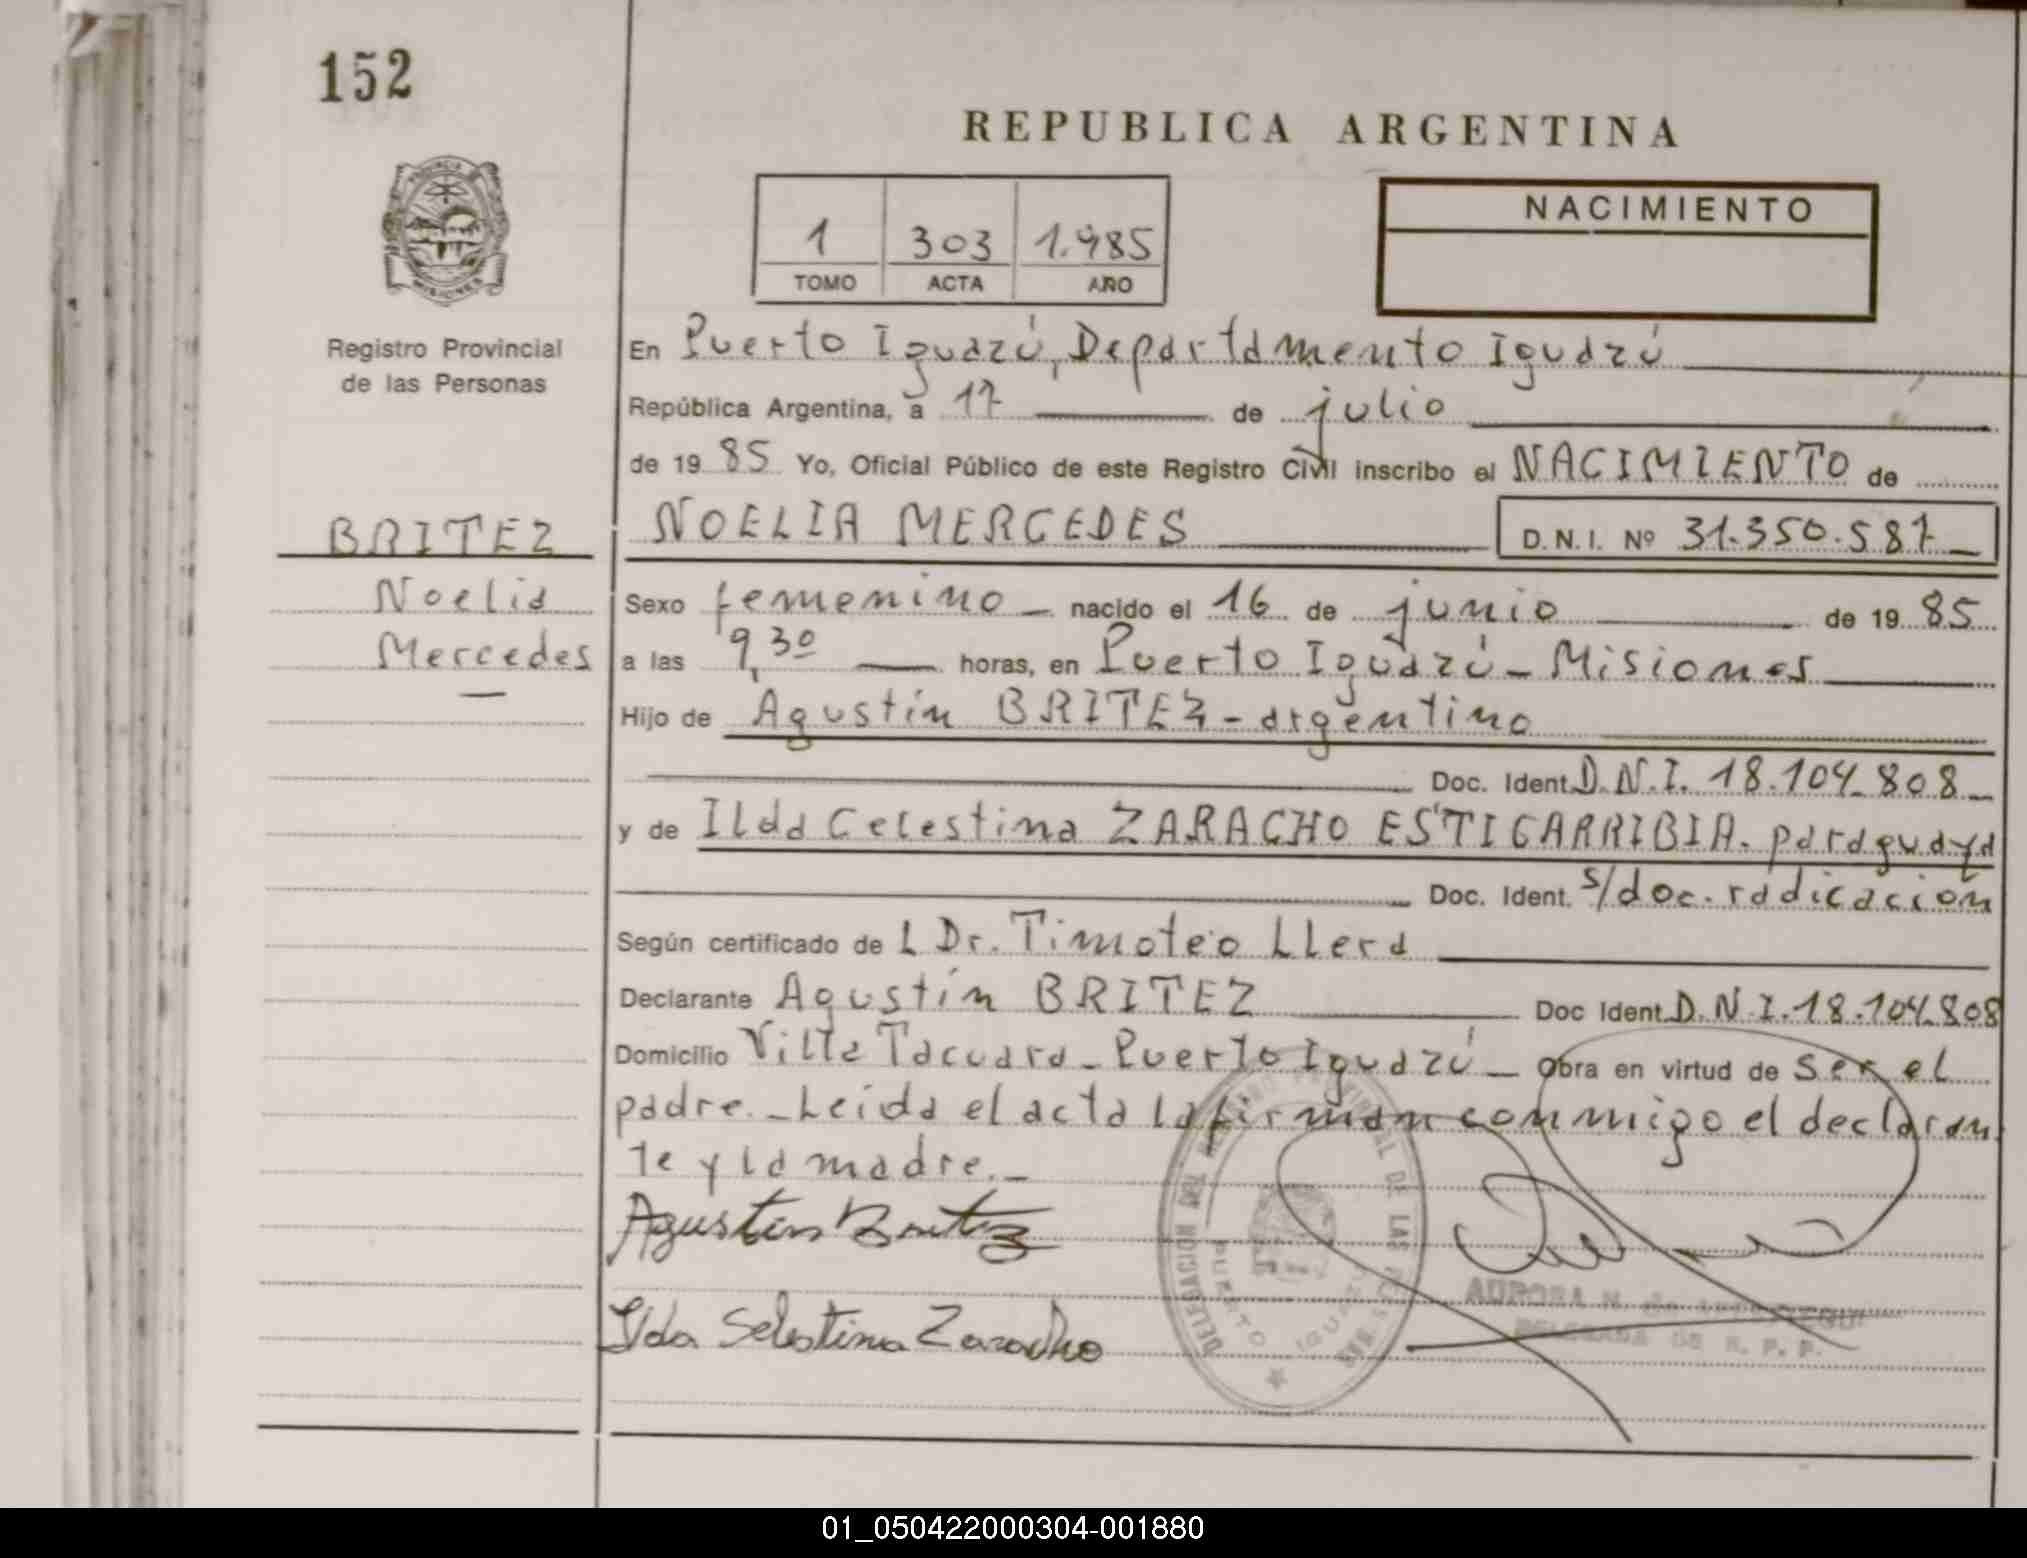 152
REPUBLICA ARGENTINA
NACIMIENTO
1 303 1.985
TOMO ACTA AÑO
PROVINCIA DE
MISIONES
Registro Provincial
de las Personas
En Puerto Iguazú, Departamento Iguazú
República Argentina, a 17 de julio
de 19 85 Yo, Oficial Público de este Registro Civil inscribo el NACIMIENTO de
BRITEZ
Noelia
Mercedes
NOELIA MERCEDES D.N.I. Nº 31.350.587
Sexo femenino nacido el 16 de junio de 19 85
a las 9,30 horas, en Puerto Iguazú - Misiones
Hijo de Agustín BRITEZ - argentino
Doc. Ident. D.N.I. 18.104.808
y de Ilda Celestina ZARACHO ESTIGARRIBIA. paraguaya
Doc. Ident. s/doc. radicación
Según certificado de L Dr. Timoteo Llera
Declarante Agustín BRITEZ Doc Ident. D.N.I. 18.104.808
Domicilio Villa Tacuara - Puerto Iguazú - Obra en virtud de ser el
padre. - Leida el acta la firman conmigo el declaran
te y la madre. -
Agustin Britez
Ylda Selestina Zaracho
DELEGACION DEL REGISTRO PROVINCIAL DE LAS PERSONAS
PUERTO IGUAZU
AURORA N. de
DELEGADA DE R. P. P.
01_050422000304-001880